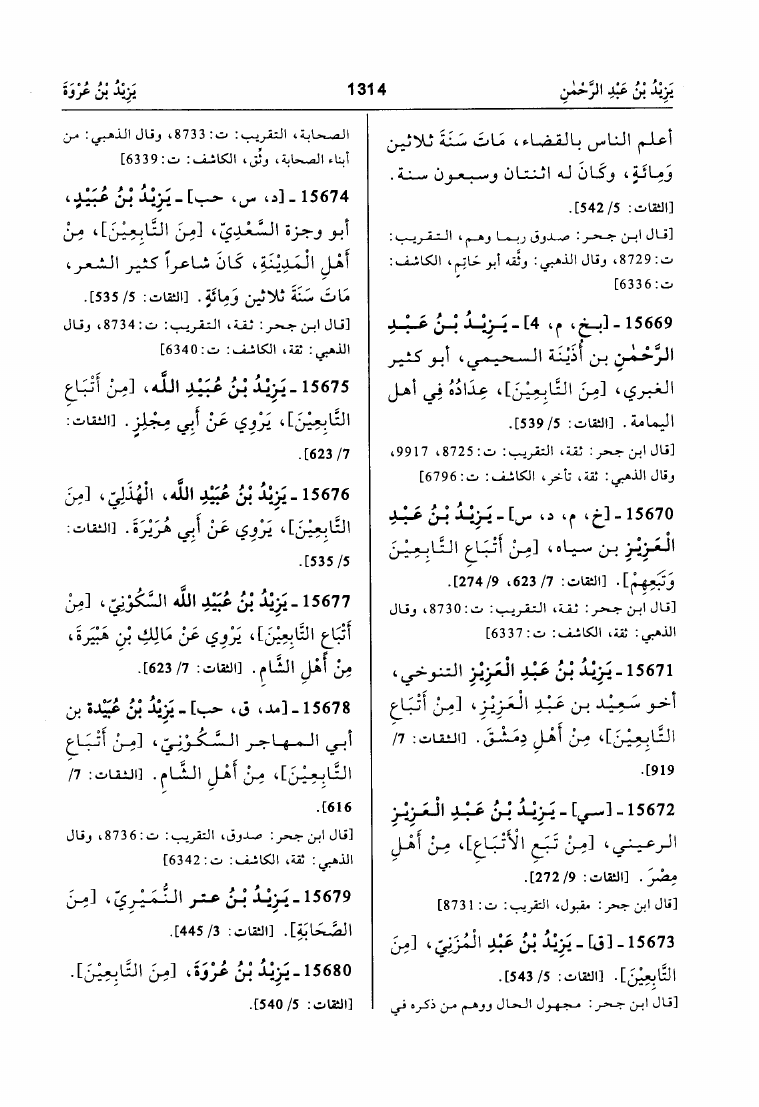 يَزِيْدُ بْنُ عَبْدِ الرَّحْمٰنِ
1314
يَزِيْدُ بْنُ عُرْوَةَ
أعلم الناس بالقضاء، مَاتَ سَنَةَ ثلاثين
وَمِائَةٍ، وَكَانَ له اثنتان وسبعون سنة.
[الثقات: 5/ 542].
[قال ابن حجر: صدوق ربما وهم، التقريب:
ت: 8729، وقال الذهبي: وثَّقه أبو حَاتِم، الكاشف:
ت: 6336]
15669 - [بخ، م، 4] - يَزِيْدُ بْنُ عَبْدِ
الرَّحْمٰنِ بن أُذَيْنَة السحيمي، أبو كثير
الغبري، [مِنَ التَّابِعِيْنَ]، عِدَادُهُ فِي أهل
اليمامة. [الثقات: 5/ 539].
[قال ابن حجر: ثقة، التقريب: ت: 8725، 9917،
وقال الذهبي: ثقة، تأخر، الكاشف: ت: 6796]
15670 - [خ، م، د، س] - يَزِيْدُ بْنُ عَبْدِ
الْعَزِيْزِ بن سياه، [مِنْ أَتْبَاعِ التَّابِعِيْنَ
وَتَبَعِهِمْ]. [الثقات: 7/ 623، 9/ 274].
[قال ابن حجر: ثقة، التقريب: ت: 8730، وقال
الذهبي: ثقة، الكاشف: ت: 6337]
15671 - يَزِيْدُ بْنُ عَبْدِ الْعَزِيْزِ التنوخي،
أخو سَعِيْد بن عَبْدِ الْعَزِيْزِ، [مِنْ أَتْبَاعِ
التَّابِعِيْنَ]، مِنْ أَهْلِ دِمَشْقَ. [الثقات: 7/
919].
15672 - [سي] - يَزِيْدُ بْنُ عَبْدِ الْعَزِيْزِ
الرعيني، [مِنْ تَبَعِ الْأَتْبَاعِ]، مِنْ أَهْلِ
مِصْرَ. [الثقات: 9/ 272].
[قال ابن حجر: مقبول، التقريب: ت: 8731]
15673 - [ق] - يَزِيْدُ بْنُ عَبْدِ الْمُزَنِيّ، [مِنَ
التَّابِعِيْنَ]. [الثقات: 5/ 543].
[قال ابن حجر: مجهول الحال ووهم من ذكره في
الصحابة، التقريب: ت: 8733، وقال الذهبي: من
أبناء الصحابة، وثِّق، الكاشف: ت: 6339]
15674 - [د، س، حب] - يَزِيْدُ بْنُ عُبَيْدٍ،
أبو وجزة السَّعْدِيّ، [مِنَ التَّابِعِيْنَ]، مِنْ
أَهْلِ الْمَدِيْنَةِ، كَانَ شاعراً كثير الشعر،
مَاتَ سَنَةَ ثلاثين وَمِائَةٍ. [الثقات: 5/ 535].
[قال ابن حجر: ثقة، التقريب: ت: 8734، وقال
الذهبي: ثقة، الكاشف: ت: 6340]
15675 - يَزِيْدُ بْنُ عُبَيْدِ اللَّه، [مِنْ أَتْبَاعِ
التَّابِعِيْنَ]، يَرْوِي عَنْ أَبِي مِجْلِزٍ. [الثقات:
7/ 623].
15676 - يَزِيْدُ بْنُ عُبَيْدِ اللَّه، الْهُذَلِيّ، [مِنَ
التَّابِعِيْنَ]، يَرْوِي عَنْ أَبِي هُرَيْرَةَ. [الثقات:
5/ 535].
15677 - يَزِيْدُ بْنُ عُبَيْدِ اللَّه السَّكُوْنِيّ، [مِنْ
أَتْبَاعِ التَّابِعِيْنَ]، يَرْوِي عَنْ مَالِكِ بْنِ هُبَيْرَةَ،
مِنْ أَهْلِ الشَّامِ. [الثقات: 7/ 623].
15678 - [مد، ق، حب] - يَزِيْدُ بْنُ عُبَيْدة بن
أبي المهاجر السَّكُوْنِيّ، [مِنْ أَتْبَاعِ
التَّابِعِيْنَ]، مِنْ أَهْلِ الشَّامِ. [الثقات: 7/
616].
[قال ابن حجر: صدوق، التقريب: ت: 8736، وقال
الذهبي: ثقة، الكاشف: ت: 6342]
15679 - يَزِيْدُ بْنُ عتر النُّمَيْرِيّ، [مِنَ
الصَّحَابَةِ]. [الثقات: 3/ 445].
15680 - يَزِيْدُ بْنُ عُرْوَةَ، [مِنَ التَّابِعِيْنَ].
[الثقات: 5/ 540].